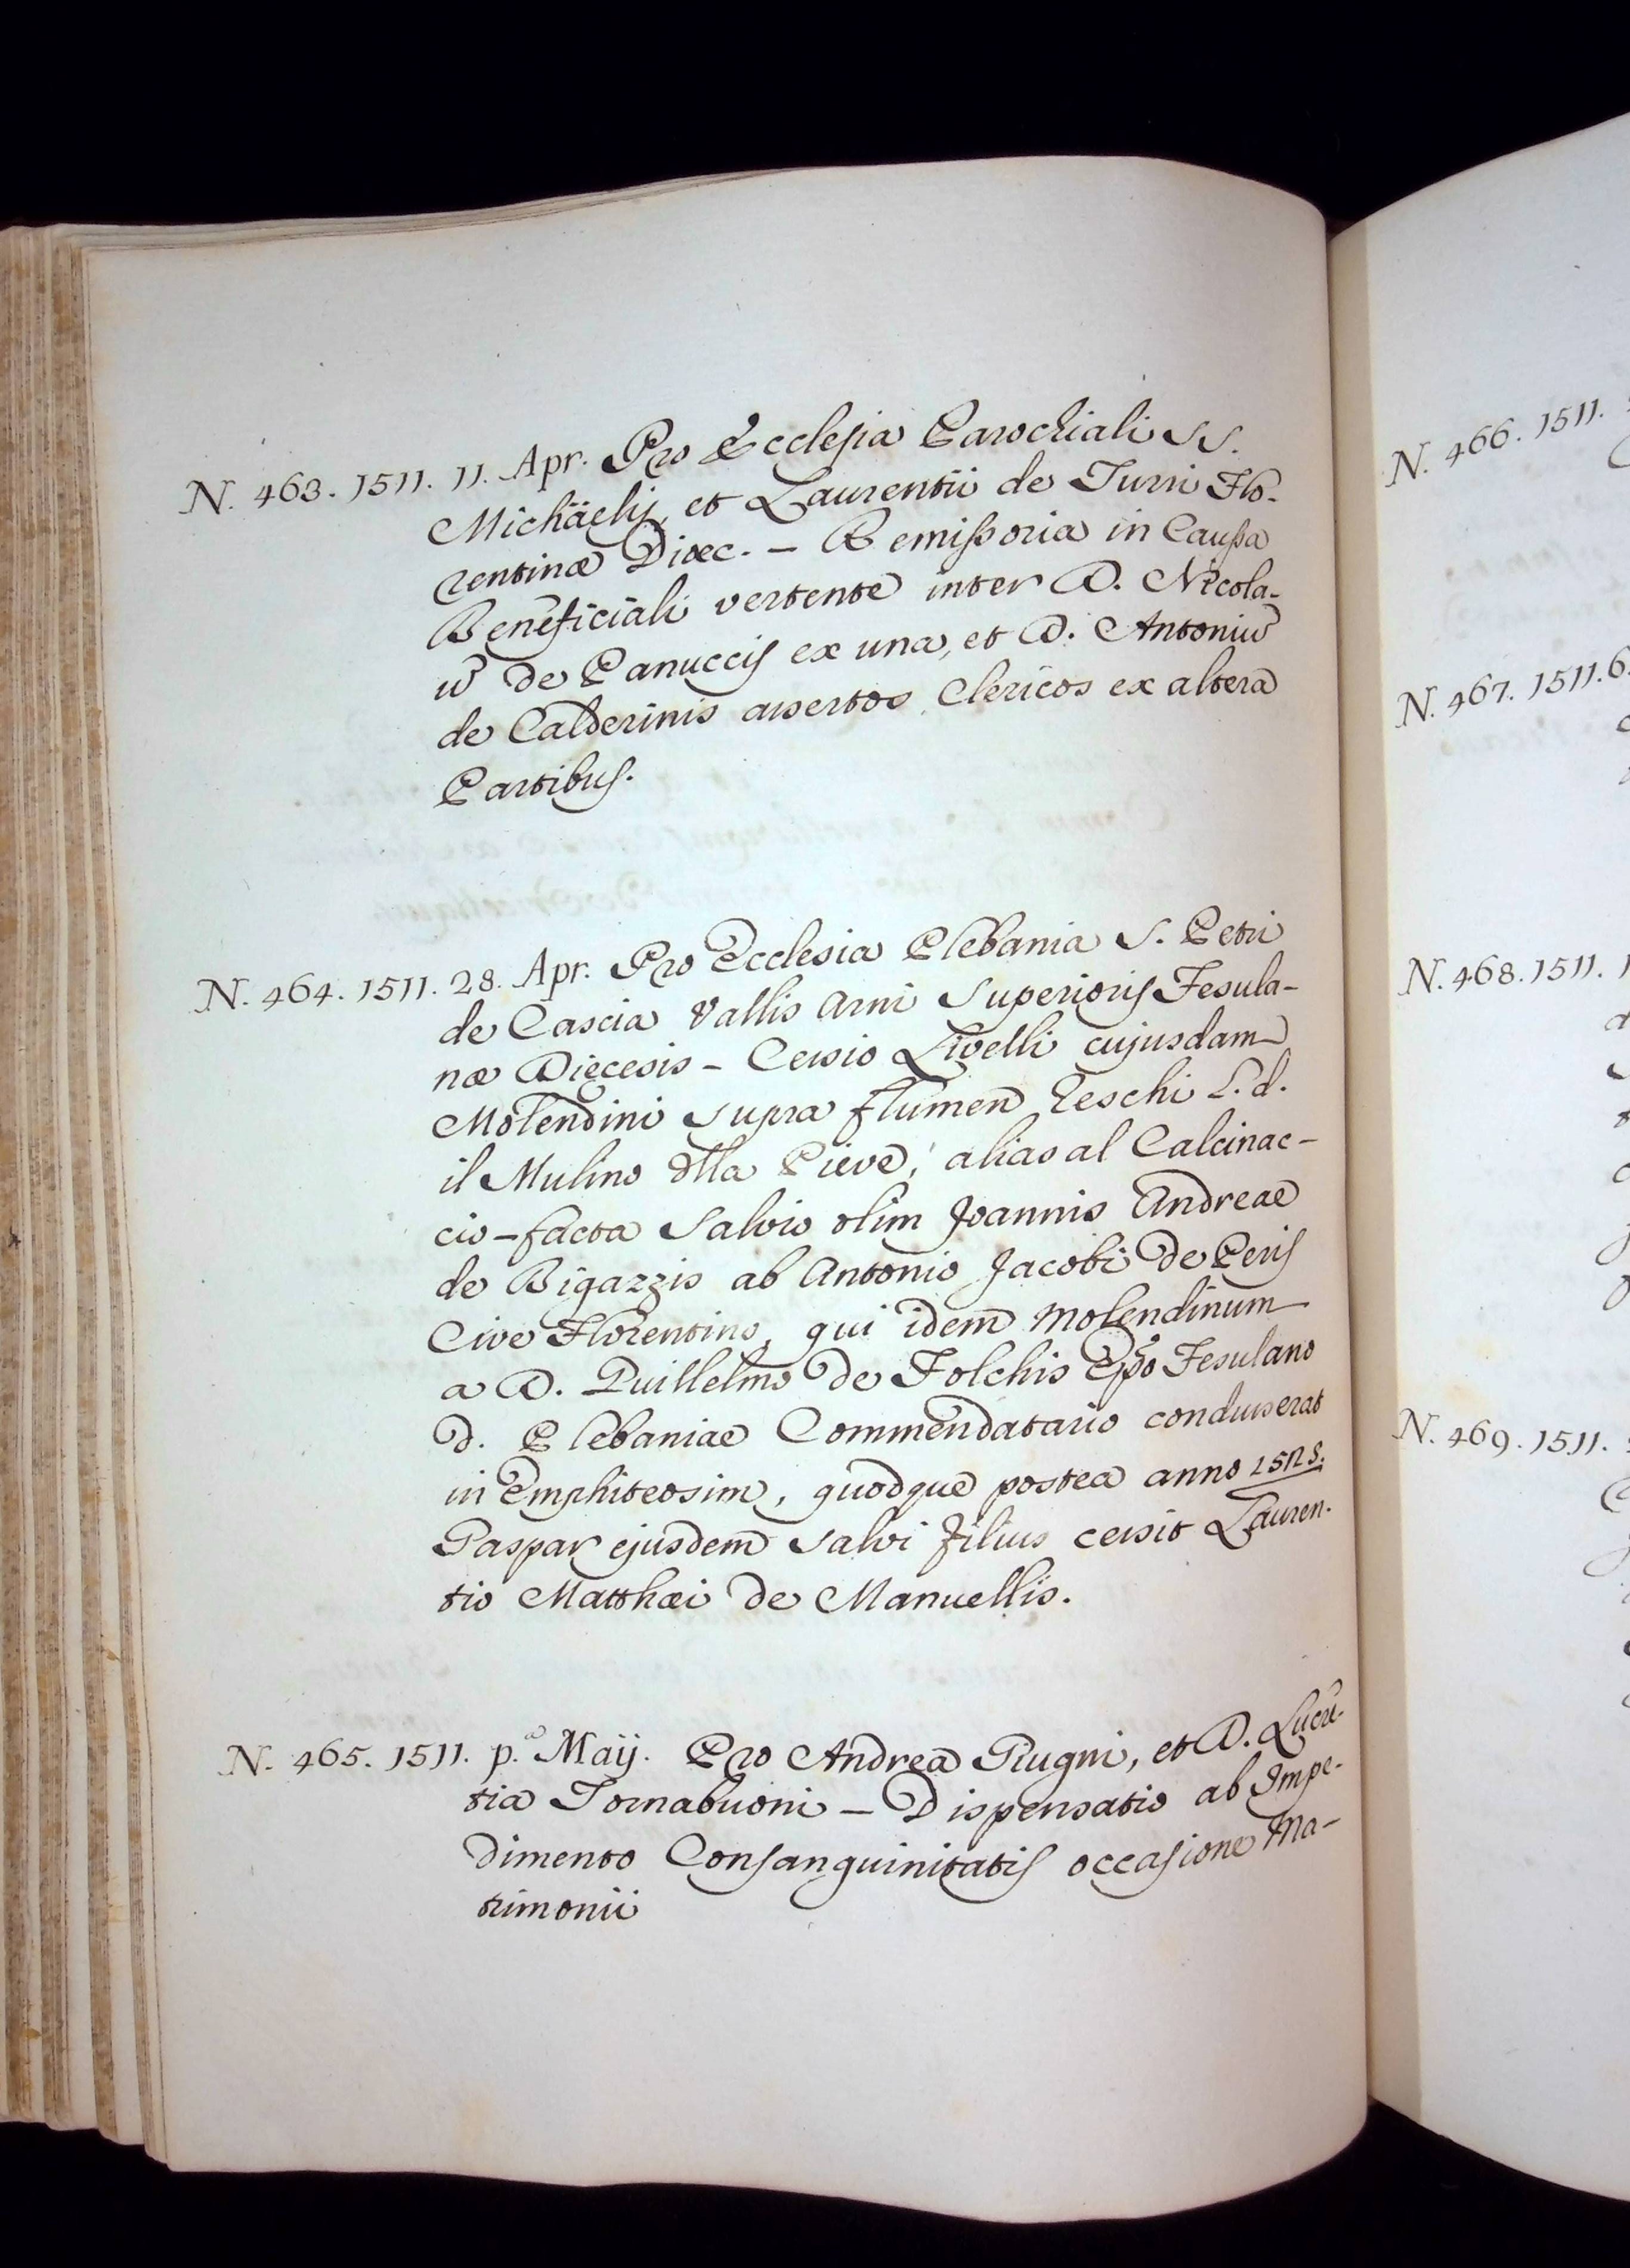 N. 463. 1511. 11. Apr. Pro Ecclesia Parochiali SS.
Michäelis, et Laurentii de Turri Flo-
rentinæ Diœc. - Remissoria in Caussa
Beneficiali vertente inter D. Nicola-
ũ de Panuccis ex una, et D. Antoniũ
de Calderinis assertos Clericos ex altera
Partibus.
N. 464. 1511. 28. Apr. Pro Ecclesia Plebania S. Petri
de Cascia Vallis Arni Superioris Fesula-
næ Dięcesis - Cessio Livelli cujusdam
Molendini supra flumen Reschi L. d.
il Mulino dlla Pieve, alias al Calcinac-
cio - facta Salvio olim Joannis Andreae
de Bigazzis ab Antonio Jacobi de Peris
Cive Florentino, qui idem Molendinum
a D. Guillelmo de Folchis Epõ Fesulano
d. Plebaniae Commendatario conduxerat
in Emphiteosim, quodque postea anno
Gaspar ejusdem Salvi filius cessit Lauren-
tio Matthæi de Manuellis.
N. 465. 1511. p.ª Maij. Pro Andrea Giugni, et D. Lucre-
tia Tornabuoni - Dispensatio ab Impe-
dimento Consanguinitatis occasione Ma-
trimonii
N. 466. 1511.
N. 467. 1511. 6.
N. 468. 1511.
N. 469. 1511.